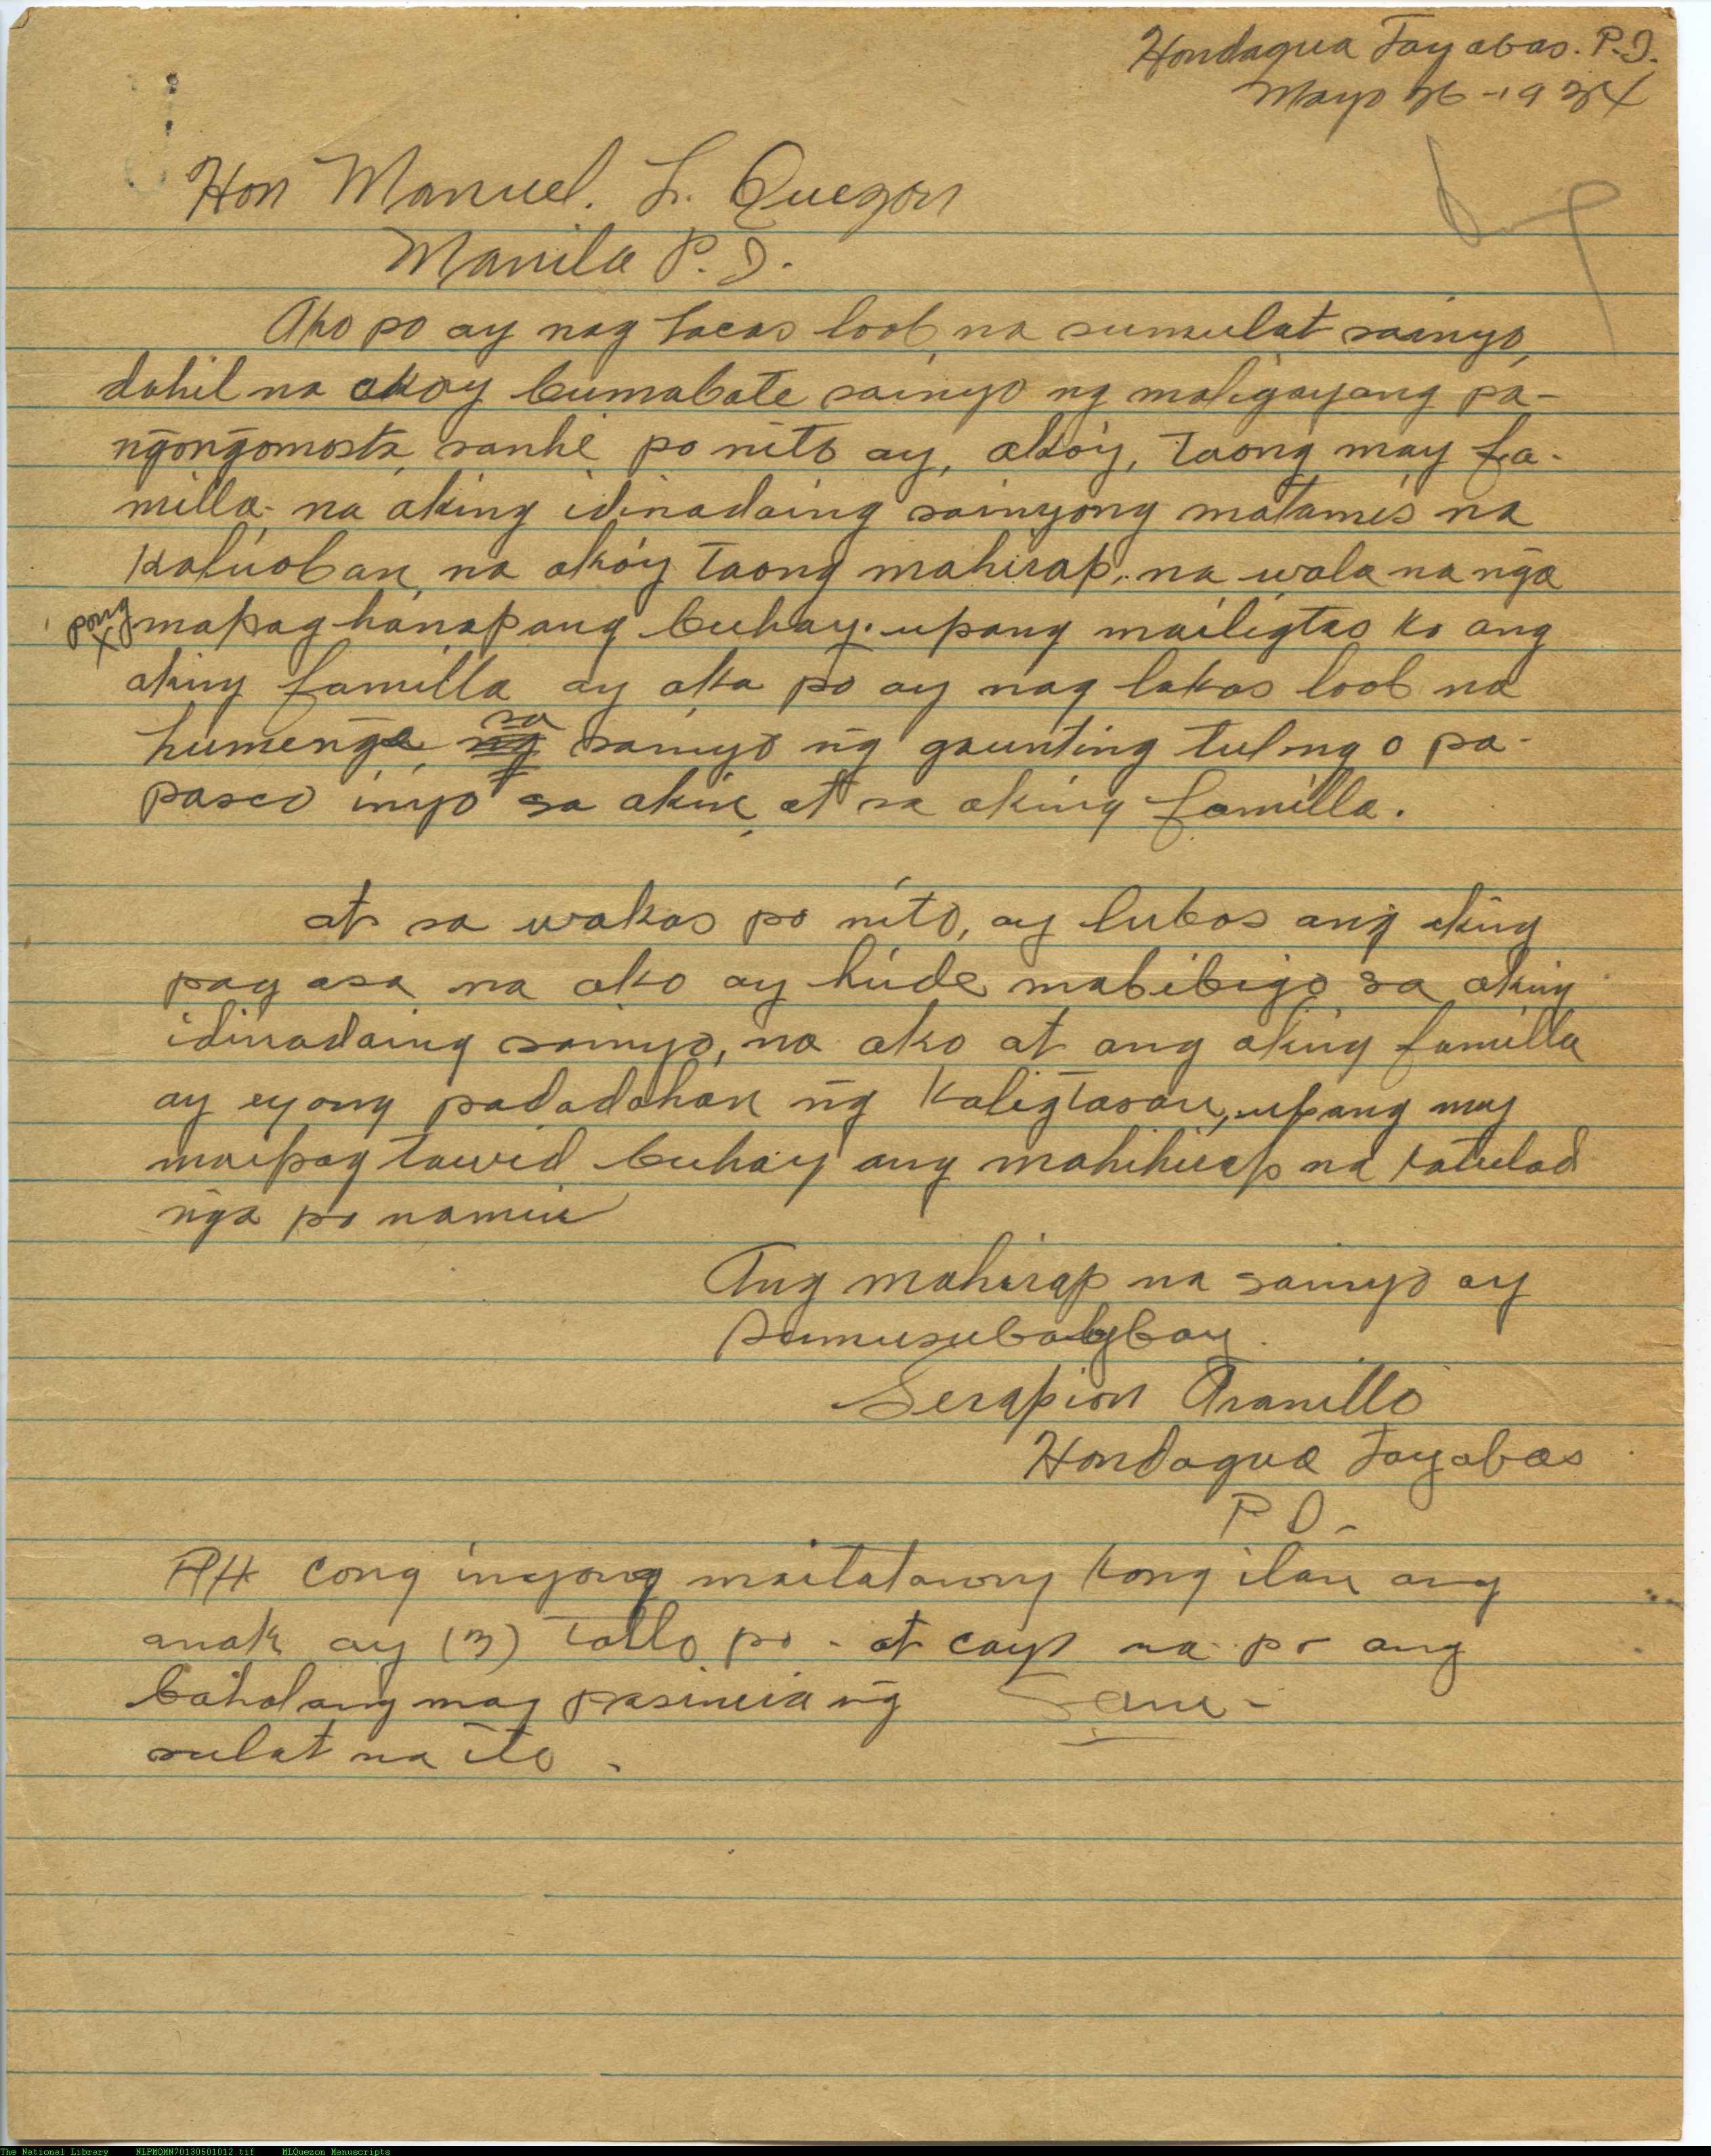 Hondagua Tayabas. P.I.
Mayo 26-1934
Hon Manuel. L. Quezon
Manila P.I.
Ako po ay nag lacas loob, na sumulat sainyo,
dahil na akoy bumabate sainyo ng maligayang pa-
ngongomosta, sanhe po nito ay, akoy, taong may fa-
milla. na aking idinadaing sainyong matamis na
kaluoban, na akoy taong mahirap, na wala na nga
pong mapag hanap ang buhay. upang mailigtas ko ang
aking familla ay ako po ay nag lakas loob na
humenge, sa sainyo ng gaunting tulong o pa-
pasco inyo sa akin, at sa aking familla.
at sa wakas po nito, ay lubos ang aking
pag asa na ako ay hinde mabibigo sa aking
idinadaing sainyo, na ako at ang aking familla
ay eyong padadahan ng kaligtasan, upang may
maipag tawid buhay ang mahihirap na katulad
nga po namin
Ang mahirap na sainyo ay
sumusubaybay.
Serapion Aranillo
Hondagua Tayabas
P I -
cong inyong maitatanong kong ilan ang
anak ay (3) tatlo po - at cayo na po ang
bahalang mag pasincia ng
sulat na ito.
The National Library NLPMQMN70130501012.tif MLQuezon Manuscripts